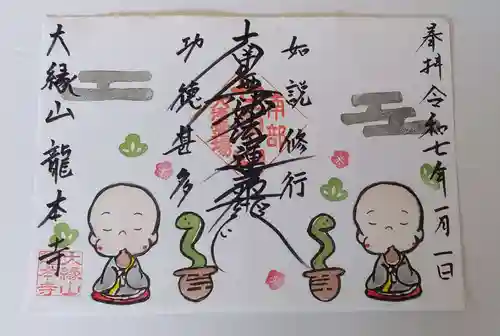 奉拝 令和七年一月一日
如説修行
南無妙法蓮華経
功徳甚多
大縁山 龍本寺